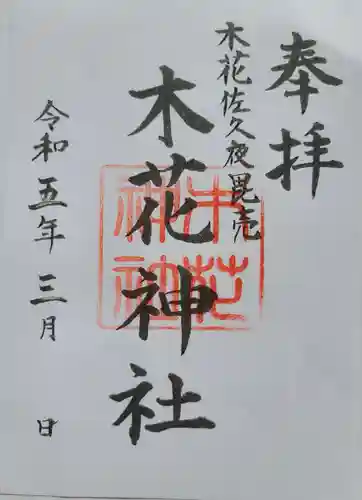 奉拝
木花佐久夜毘売
木花神社
木花
神社
令和五年三月　日